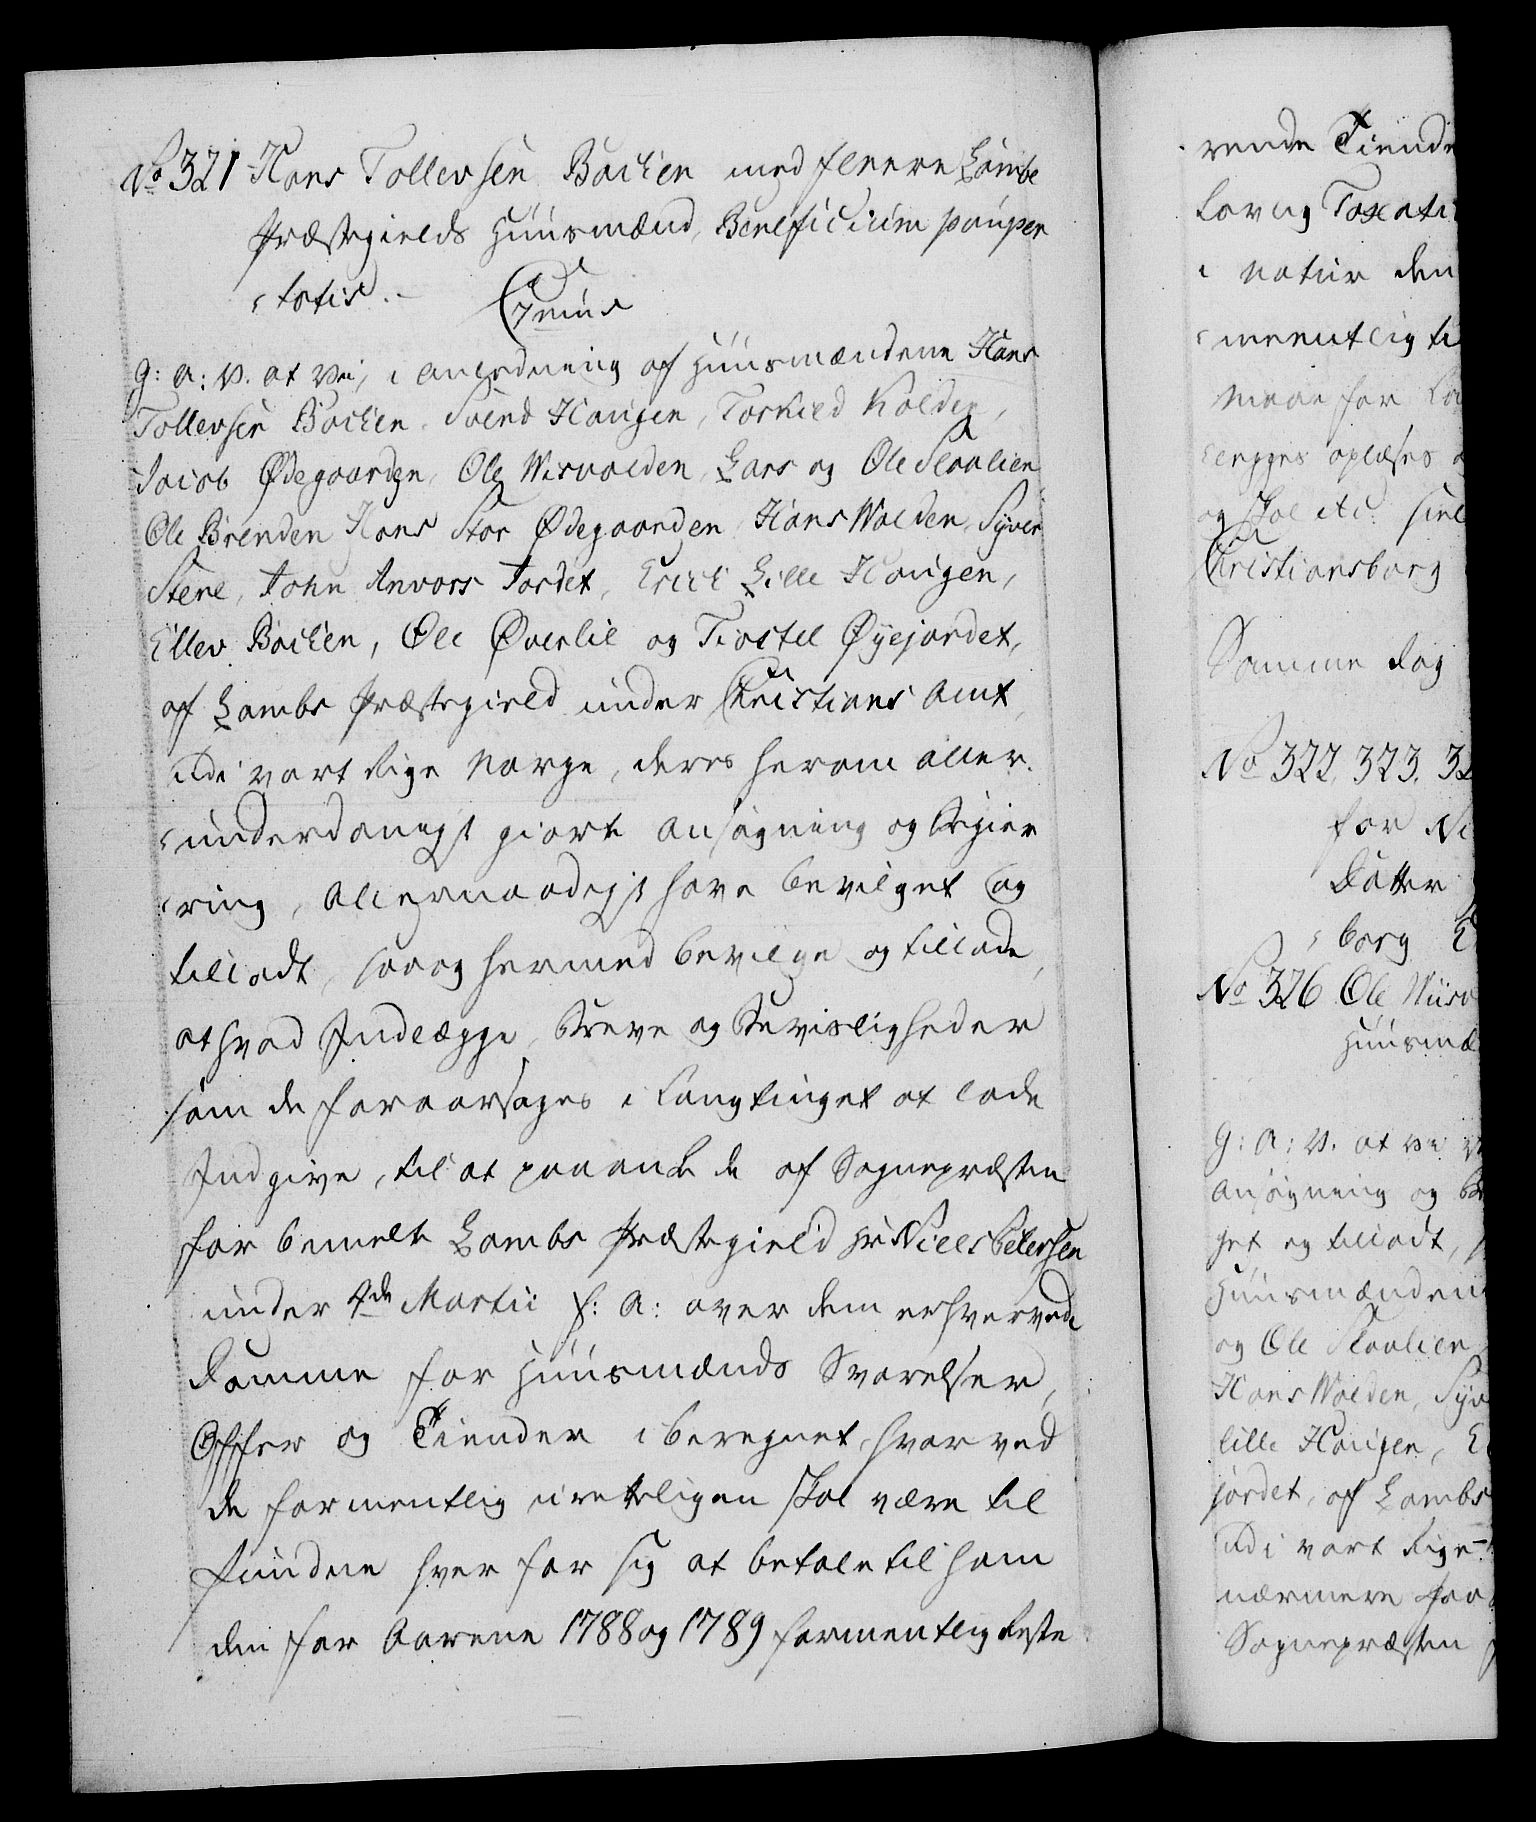 No 321 Hans Tollevsen Backen med fleere Lambe
Præstegields Huusmænd, Beneficium pauper
tatis.
Gratiis
G: A: V. at Vi, i anledning af Huusmændene Hans
Tollevsen Backen, Svend Haugen, Torkild Kolden,
Jacob Ødegaarden, Ole Wisvolden, Lars og Ole Slaalien
Ole Brenden Hans Stor Ødegaarden, Hans Wolden, Syver
Stene, John Anvors Jordet, Erick Lille Haugen,
Ellev Backen, Ole Øverlie og Tiostel Øyejordet,
af Lambs Præstegield under Christians Amt,
udi vort Rige Norge, deres herom aller-
underdanigst giorte Ansøgning og Begier
ring, Allernaadigst have bevilget og
tilladt, saa og hermed bevilge og tillade,
at hvad Indlægge, Breve og Beviisligheder
som de foraarsages i Laugtinget at lade
Indgive, til at paaanke de af Sognepræsten
for bemelte Lambs Præstegield Hr Niels Petersen
under 4de Martii f: A: over dem erhvervede
Domme for Huusmænds Svarelser,
Offer og Tiender iberegnet, hvorved
de formentlig uretteligen skal være til
funden hver for sig at betale til ham
den for Aarene 1788 og 1789 formentlig Reste
rende Tiende
lovlig Taxati
i Natur den
meentlig ti
og skal etc.
Christiansborg
Samme dag
No 322, 323. 32
for Ni
Datter
borg
No 326 Ole
Huusmæ
G: A: V. at Vi
Ansøgning og Be
get og tilladt,
Huusmænden
og Ole Slaalien
Hans Wolden, Syv
lille Haugen, E
jordet, af Lambs
udi vort Rige
nærmere
Sognepræsten